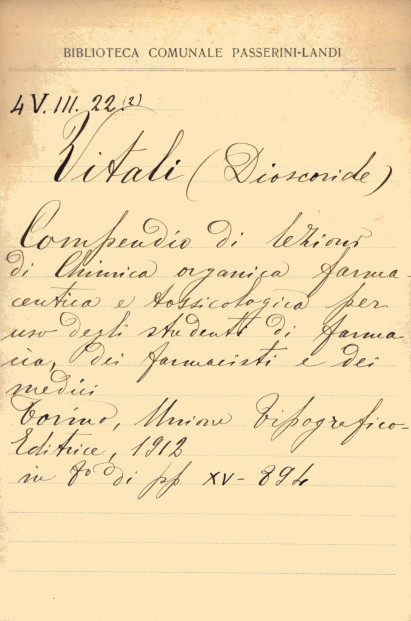 BIBLIOTECA COMUNALE PASSERINI-LANDI
4 V. III. 22.(2)
Vitali (Dioscoride)
Compendio di lezioni
di Chimica organica farma-
ceutica e tossicologica per
uso degli studenti di farma-
cia, dei farmacisti e dei
medici
Torino, Unione Tipografico-
Editrice, 1912
in 8° di pp XV-894